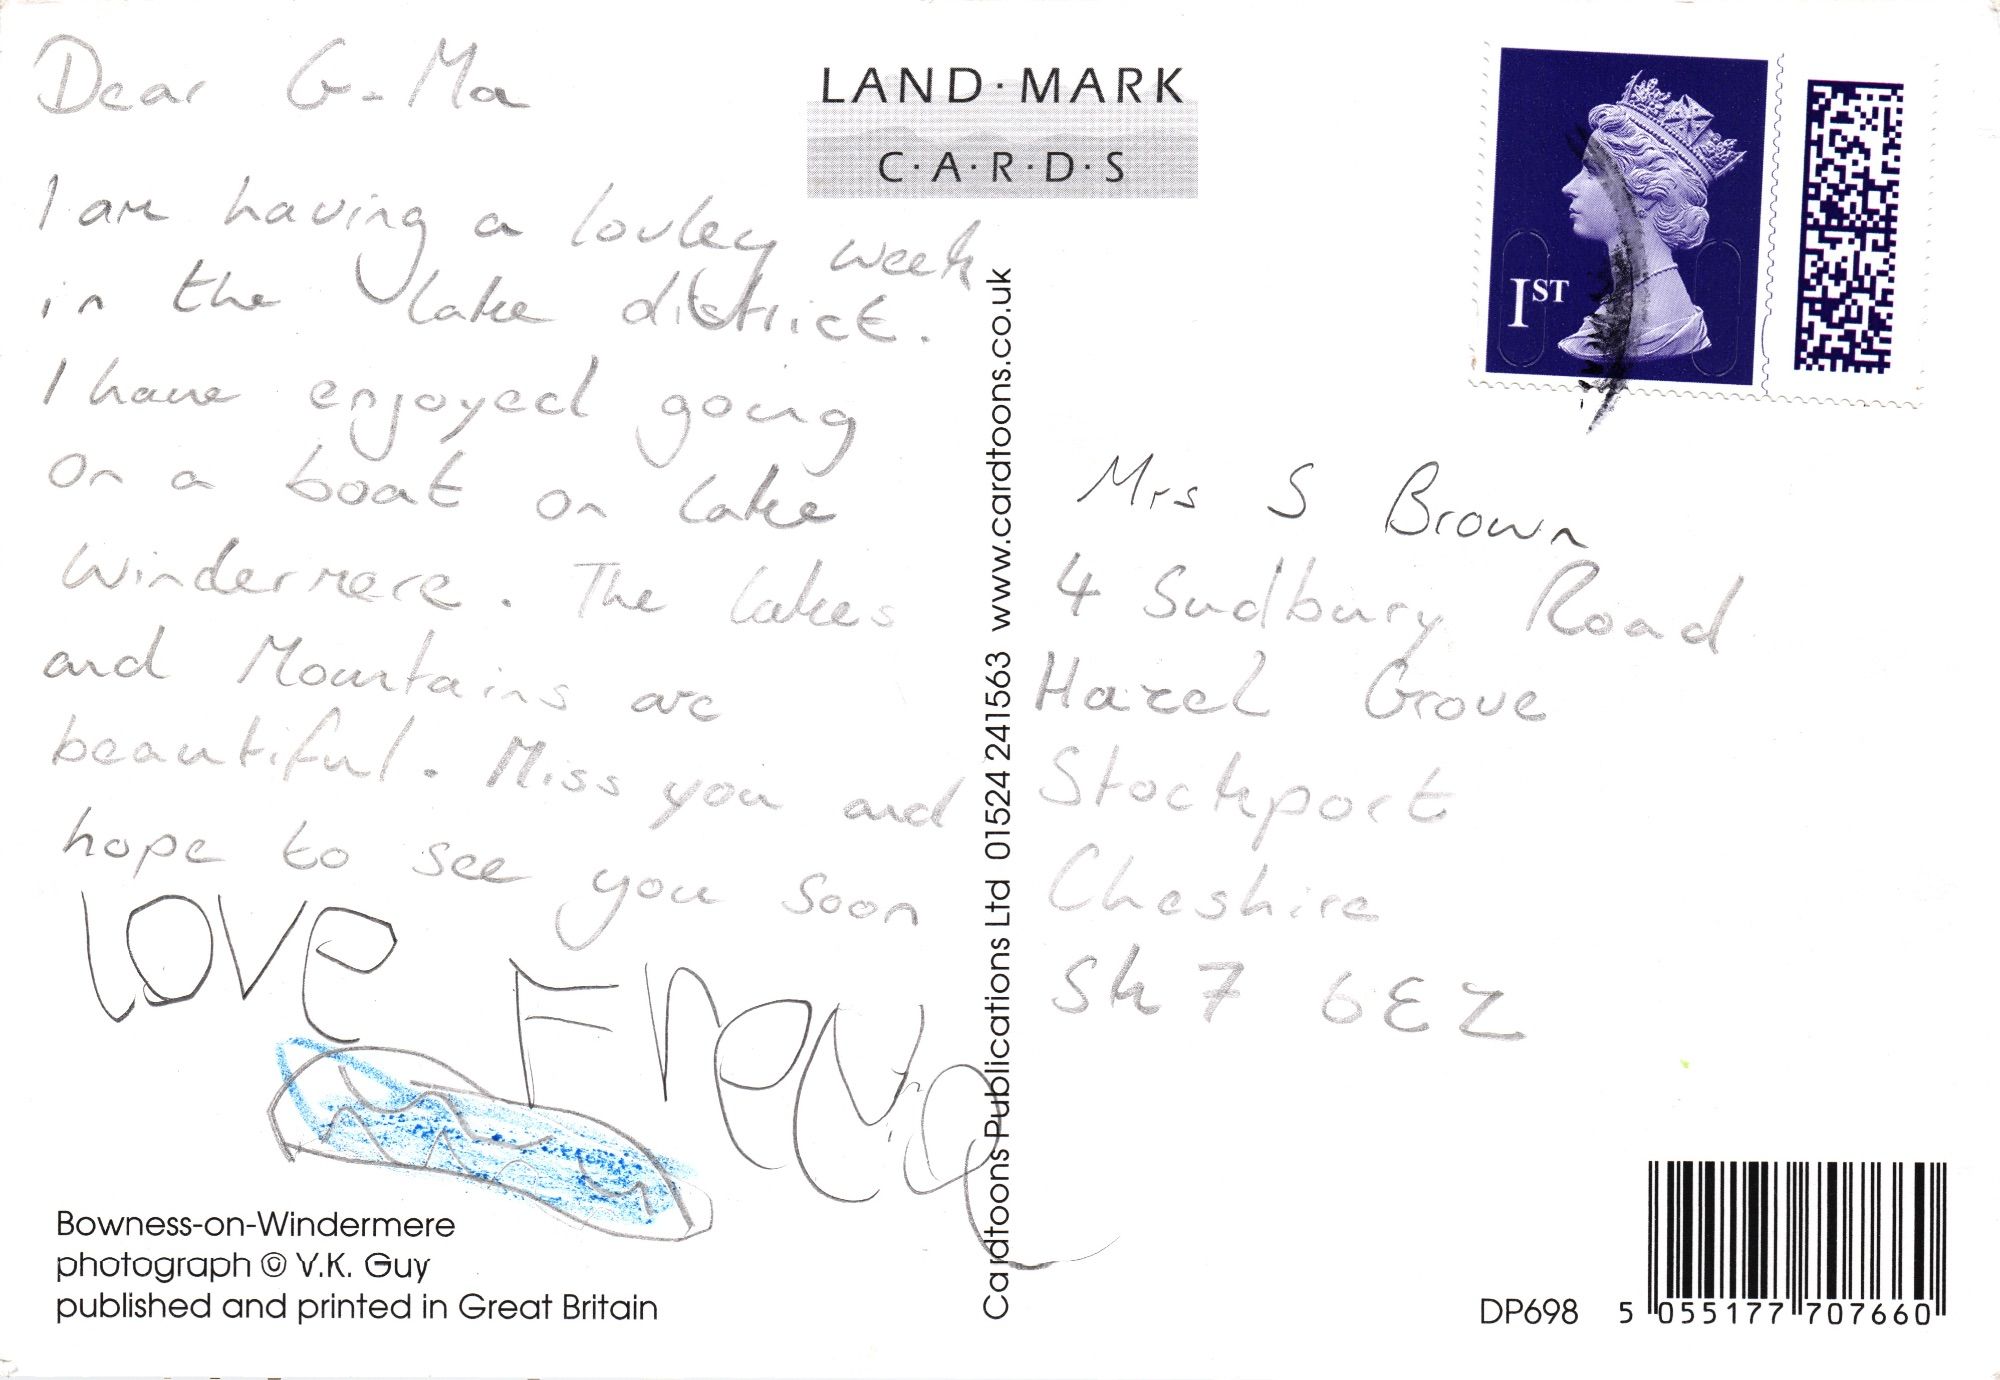 Dear G-Ma
I am having a lovley week
in the lake district.
I have enjoyed going
on a boat on lake
Windermere. The lakes
and Mountains are
beautiful. Miss you and
hope to see you soon
love Freya
Bowness-on-Windermere
photograph © V.K. Guy
published and printed in Great Britain
LAND·MARK
C·A·R·D·S
Cardtoons Publications Ltd 01524 241563 www.cardtoons.co.uk
1ST
Mrs S Brown
4 Sudbury Road
Hazel Grove
Stockport
Cheshire
Sk7 6EZ
DP698
5 055177 707660